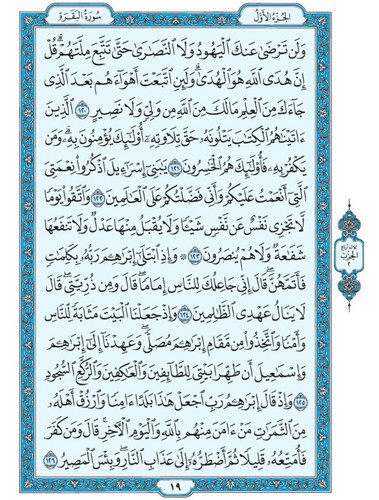 الجزء الأول
سورة البقرة
وَلَن تَرْضَىٰ عَنكَ ٱلْيَهُودُ وَلَا ٱلنَّصَٰرَىٰ حَتَّىٰ تَتَّبِعَ مِلَّتَهُمْ ۗ قُلْ
إِنَّ هُدَى ٱللَّهِ هُوَ ٱلْهُدَىٰ ۗ وَلَئِنِ ٱتَّبَعْتَ أَهْوَآءَهُم بَعْدَ ٱلَّذِى
جَآءَكَ مِنَ ٱلْعِلْمِ ۙ مَا لَكَ مِنَ ٱللَّهِ مِن وَلِىٍّ وَلَا نَصِيرٍ ١٢٠ ٱلَّذِينَ
ءَاتَيْنَٰهُمُ ٱلْكِتَٰبَ يَتْلُونَهُۥ حَقَّ تِلَاوَتِهِۦٓ أُو۟لَٰٓئِكَ يُؤْمِنُونَ بِهِۦ ۗ وَمَن
يَكْفُرْ بِهِۦ فَأُو۟لَٰٓئِكَ هُمُ ٱلْخَٰسِرُونَ ١٢١ يَٰبَنِىٓ إِسْرَٰٓءِيلَ ٱذْكُرُوا۟ نِعْمَتِىَ
ٱلَّتِىٓ أَنْعَمْتُ عَلَيْكُمْ وَأَنِّى فَضَّلْتُكُمْ عَلَى ٱلْعَٰلَمِينَ ١٢٢ وَٱتَّقُوا۟ يَوْمًا
لَّا تَجْزِى نَفْسٌ عَن نَّفْسٍ شَيْـًٔا وَلَا يُقْبَلُ مِنْهَا عَدْلٌ وَلَا تَنفَعُهَا
شَفَٰعَةٌ وَلَا هُمْ يُنصَرُونَ ١٢٣ ۞ وَإِذِ ٱبْتَلَىٰٓ إِبْرَٰهِۦمَ رَبُّهُۥ بِكَلِمَٰتٍ
فَأَتَمَّهُنَّ ۖ قَالَ إِنِّى جَاعِلُكَ لِلنَّاسِ إِمَامًا ۖ قَالَ وَمِن ذُرِّيَّتِى ۖ قَالَ
لَا يَنَالُ عَهْدِى ٱلظَّٰلِمِينَ ١٢٤ وَإِذْ جَعَلْنَا ٱلْبَيْتَ مَثَابَةً لِّلنَّاسِ
وَأَمْنًا وَٱتَّخِذُوا۟ مِن مَّقَامِ إِبْرَٰهِۦمَ مُصَلًّى ۖ وَعَهِدْنَآ إِلَىٰٓ إِبْرَٰهِۦمَ
وَإِسْمَٰعِيلَ أَن طَهِّرَا بَيْتِىَ لِلطَّآئِفِينَ وَٱلْعَٰكِفِينَ وَٱلرُّكَّعِ ٱلسُّجُودِ
١٢٥ وَإِذْ قَالَ إِبْرَٰهِۦمُ رَبِّ ٱجْعَلْ هَٰذَا بَلَدًا ءَامِنًا وَٱرْزُقْ أَهْلَهُۥ
مِنَ ٱلثَّمَرَٰتِ مَنْ ءَامَنَ مِنْهُم بِٱللَّهِ وَٱلْيَوْمِ ٱلْـَٔاخِرِ ۖ قَالَ وَمَن كَفَرَ
فَأُمَتِّعُهُۥ قَلِيلًا ثُمَّ أَضْطَرُّهُۥٓ إِلَىٰ عَذَابِ ٱلنَّارِ ۖ وَبِئْسَ ٱلْمَصِيرُ ١٢٦
الحزب
١٩